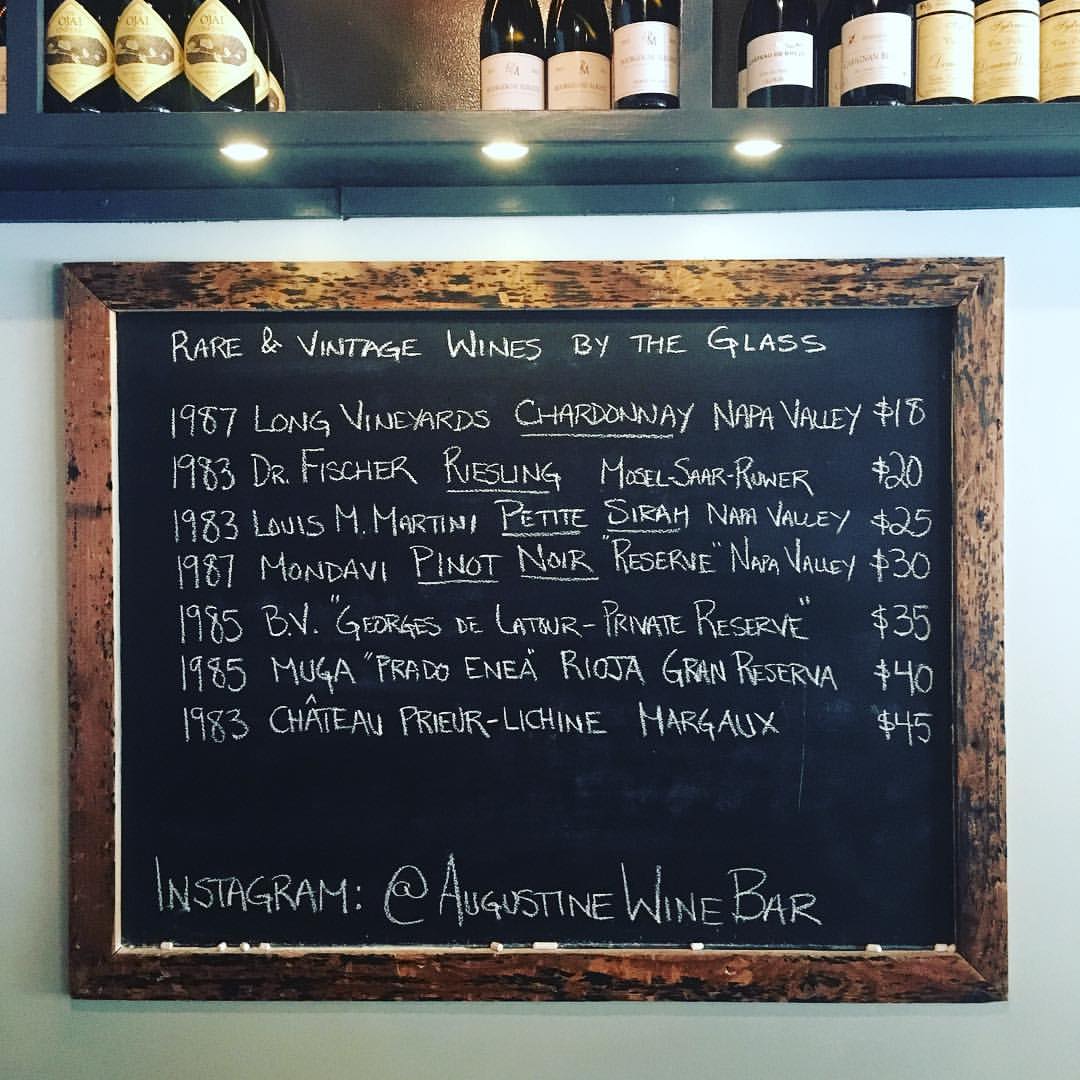 OJAI
OJAI
OJAI
RM
RM
RM
RARE & VINTAGE WINES BY THE GLASS
1987 LONG VINEYARDS CHARDONNAY NAPA VALLEY $18
1983 DR. FISCHER RIESLING MOSEL-SAAR-RUWER $20
1983 LOUIS M. MARTINI PETITE SIRAH NAPA VALLEY $25
1987 MONDAVI PINOT NOIR "RESERVE" NAPA VALLEY $30
1985 B.V. "GEORGES DE LATOUR-PRIVATE RESERVE" $35
1985 MUGA "PRADO ENEA" RIOJA GRAN RESERVA $40
1983 CHÂTEAU PRIEUR-LICHINE MARGAUX $45
INSTAGRAM: @AUGUSTINE WINE BAR